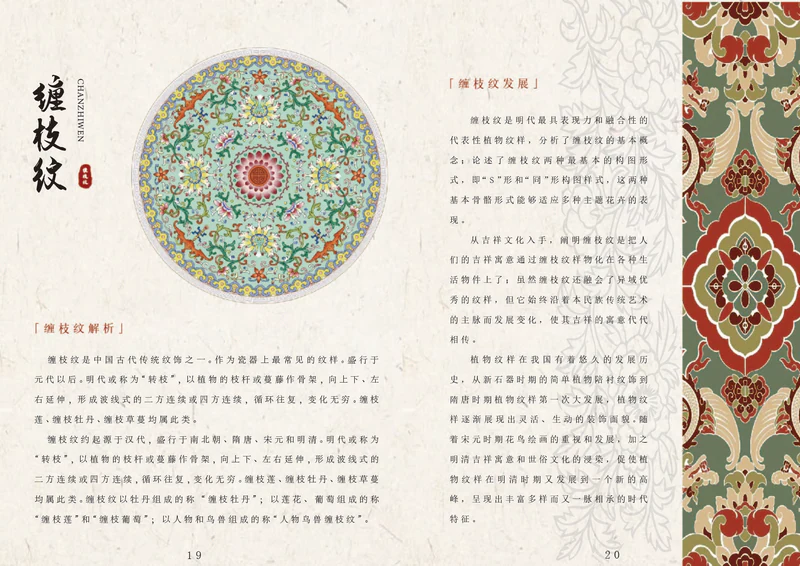 缠枝纹
CHANZHIWEN
缠枝纹
「缠枝纹解析」
缠枝纹是中国古代传统纹饰之一。作为瓷器上最常见的纹样。盛行于
元代以后。明代或称为“转枝”，以植物的枝杆或蔓藤作骨架，向上下、左
右延伸，形成波线式的二方连续或四方连续，循环往复，变化无穷。缠枝
莲、缠枝牡丹、缠枝草蔓均属此类。
缠枝纹约起源于汉代，盛行于南北朝、隋唐、宋元和明清。明代或称为
“转枝”，以植物的枝杆或蔓藤作骨架，向上下、左右延伸，形成波线式的
二方连续或四方连续，循环往复，变化无穷。缠枝莲、缠枝牡丹、缠枝草蔓
均属此类。缠枝纹以牡丹组成的称“缠枝牡丹”；以莲花、葡萄组成的称
“缠枝莲”和“缠枝葡萄”；以人物和鸟兽组成的称“人物鸟兽缠枝纹”。
19
「缠枝纹发展」
缠枝纹是明代最具表现力和融合性的
代表性植物纹样，分析了缠枝纹的基本概
念；论述了缠枝纹两种最基本的构图形
式，即“S”形和“同”形构图样式，这两种
基本骨骼形式能够适应多种主题花卉的表
现。
从吉祥文化入手，阐明缠枝纹是把人
们的吉祥寓意通过缠枝纹样物化在各种生
活物件上了；虽然缠枝纹还融会了异域优
秀的纹样，但它始终沿着本民族传统艺术
的主脉而发展变化，使其吉祥的寓意代代
相传。
植物纹样在我国有着悠久的发展历
史，从新石器时期的简单植物陪衬纹饰到
隋唐时期植物纹样第一次大发展，植物纹
样逐渐展现出灵活、生动的装饰面貌。随
着宋元时期花鸟绘画的重视和发展，加之
明清吉祥寓意和世俗文化的浸染，促使植
物纹样在明清时期又发展到一个新的高
峰，呈现出丰富多样而又一脉相承的时代
特征。
20